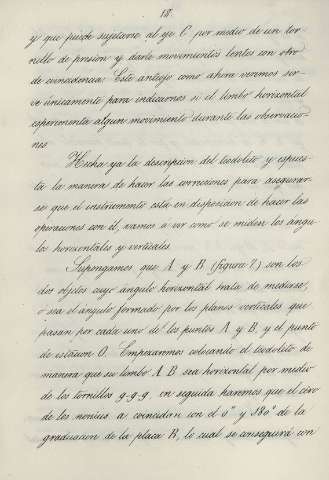 18.
y que puede sujetarse al eje C por medio de un tor-
nillo de presion y darle movimientos lentos con otro
de coincidencia. Este anteojo como ahora veremos sir-
ve unicamente para indicarnos si el limbo horizontal
experimenta algun movimiento durante las observacio-
nes.
Hecha ya la descripcion del teodolito y espues-
ta la manera de hacer las correciones para asegurar-
se que el instrumento está en disposicion de hacer las
operaciones con él, vamos á ver como se miden los angu-
los horizontales y verticales.
Supongamos que A y B (figura 7.) son los
dos objetos cuyo angulo horizontal trata de medirse,
ó sea el angulo formado por los planos verticales que
pasan por cada uno de los puntos A y B, y el punto
de estacion O. Empezaremos colocando el teodolito de
manera que su limbo A B sea horizontal por medio
de los tornillos g-g-g. en seguida haremos que el cero
de los nonius a coincidan con el 0° y 180° de la
graduacion de la placa B, lo cual se conseguirá con